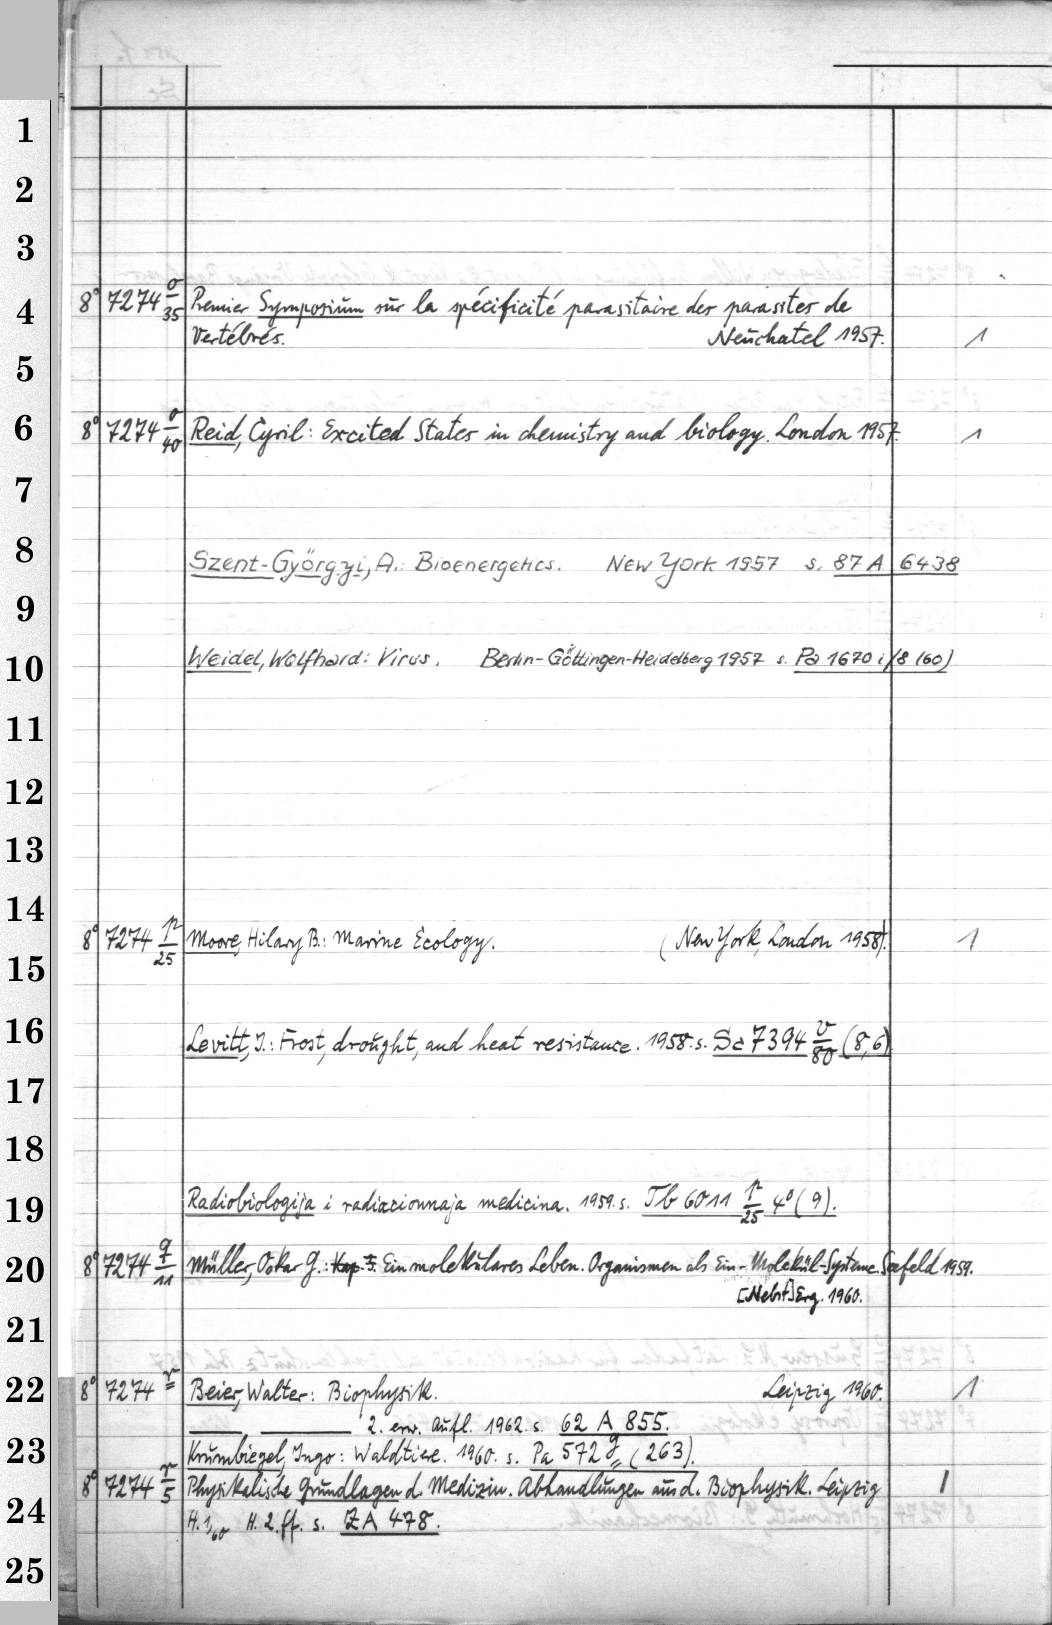 1
2
3
4
5
6
7
8
9
10
11
12
13
14
15
16
17
18
19
20
21
22
23
24
25
8° 7274 o/35 Premier Symposium sur la spécificité parasitaire des parasites de
Vertébrés. Neuchatel 1957. 1
8° 7274 o/40 Reid, Cyril: Excited States in chemistry and biology. London 1957. 1
Szent-Györgyi, A.: Bioenergetics. New York 1957 s. 87 A 6438
Weidel, Wolfhard: Virus. Berlin-Göttingen-Heidelberg 1957 s. Pa 1670 i/8 (60)
8° 7274 p/25 Moore, Hilary B.: Marine Ecology. (New York, London 1958). 1
Levitt, J.: Frost, drought, and heat resistance. 1958. s. Sa 7394 v/80 (8,6)
Radiobiologija i radiacionnaja medicina. 1959. s. Tb 6011 p/25 4° (9).
8° 7274 q/11 Müller, Oskar G.: Ein molekulares Leben. Organismen als Ein-Molekül-Systeme. Seefeld 1959.
[Nebst] Erg. 1960.
8° 7274 r Beier, Walter: Biophysik. Leipzig 1960. 1
2. erw. Aufl. 1962. s. 62 A 855.
Krumbiegel, Ingo: Waldtiere. 1960. s. Pa 572 g (263).
8° 7274 r/5 Physikalische Grundlagen d. Medizin. Abhandlungen aus d. Biophysik. Leipzig 1
H. 1, 60 H. 2. ff. s. ZA 478.